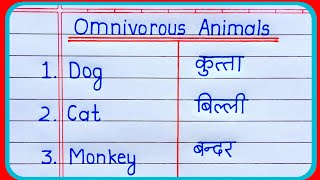 Omnivorous Animals
1. Dog कुत्ता
2. Cat बिल्ली
3. Monkey बन्दर